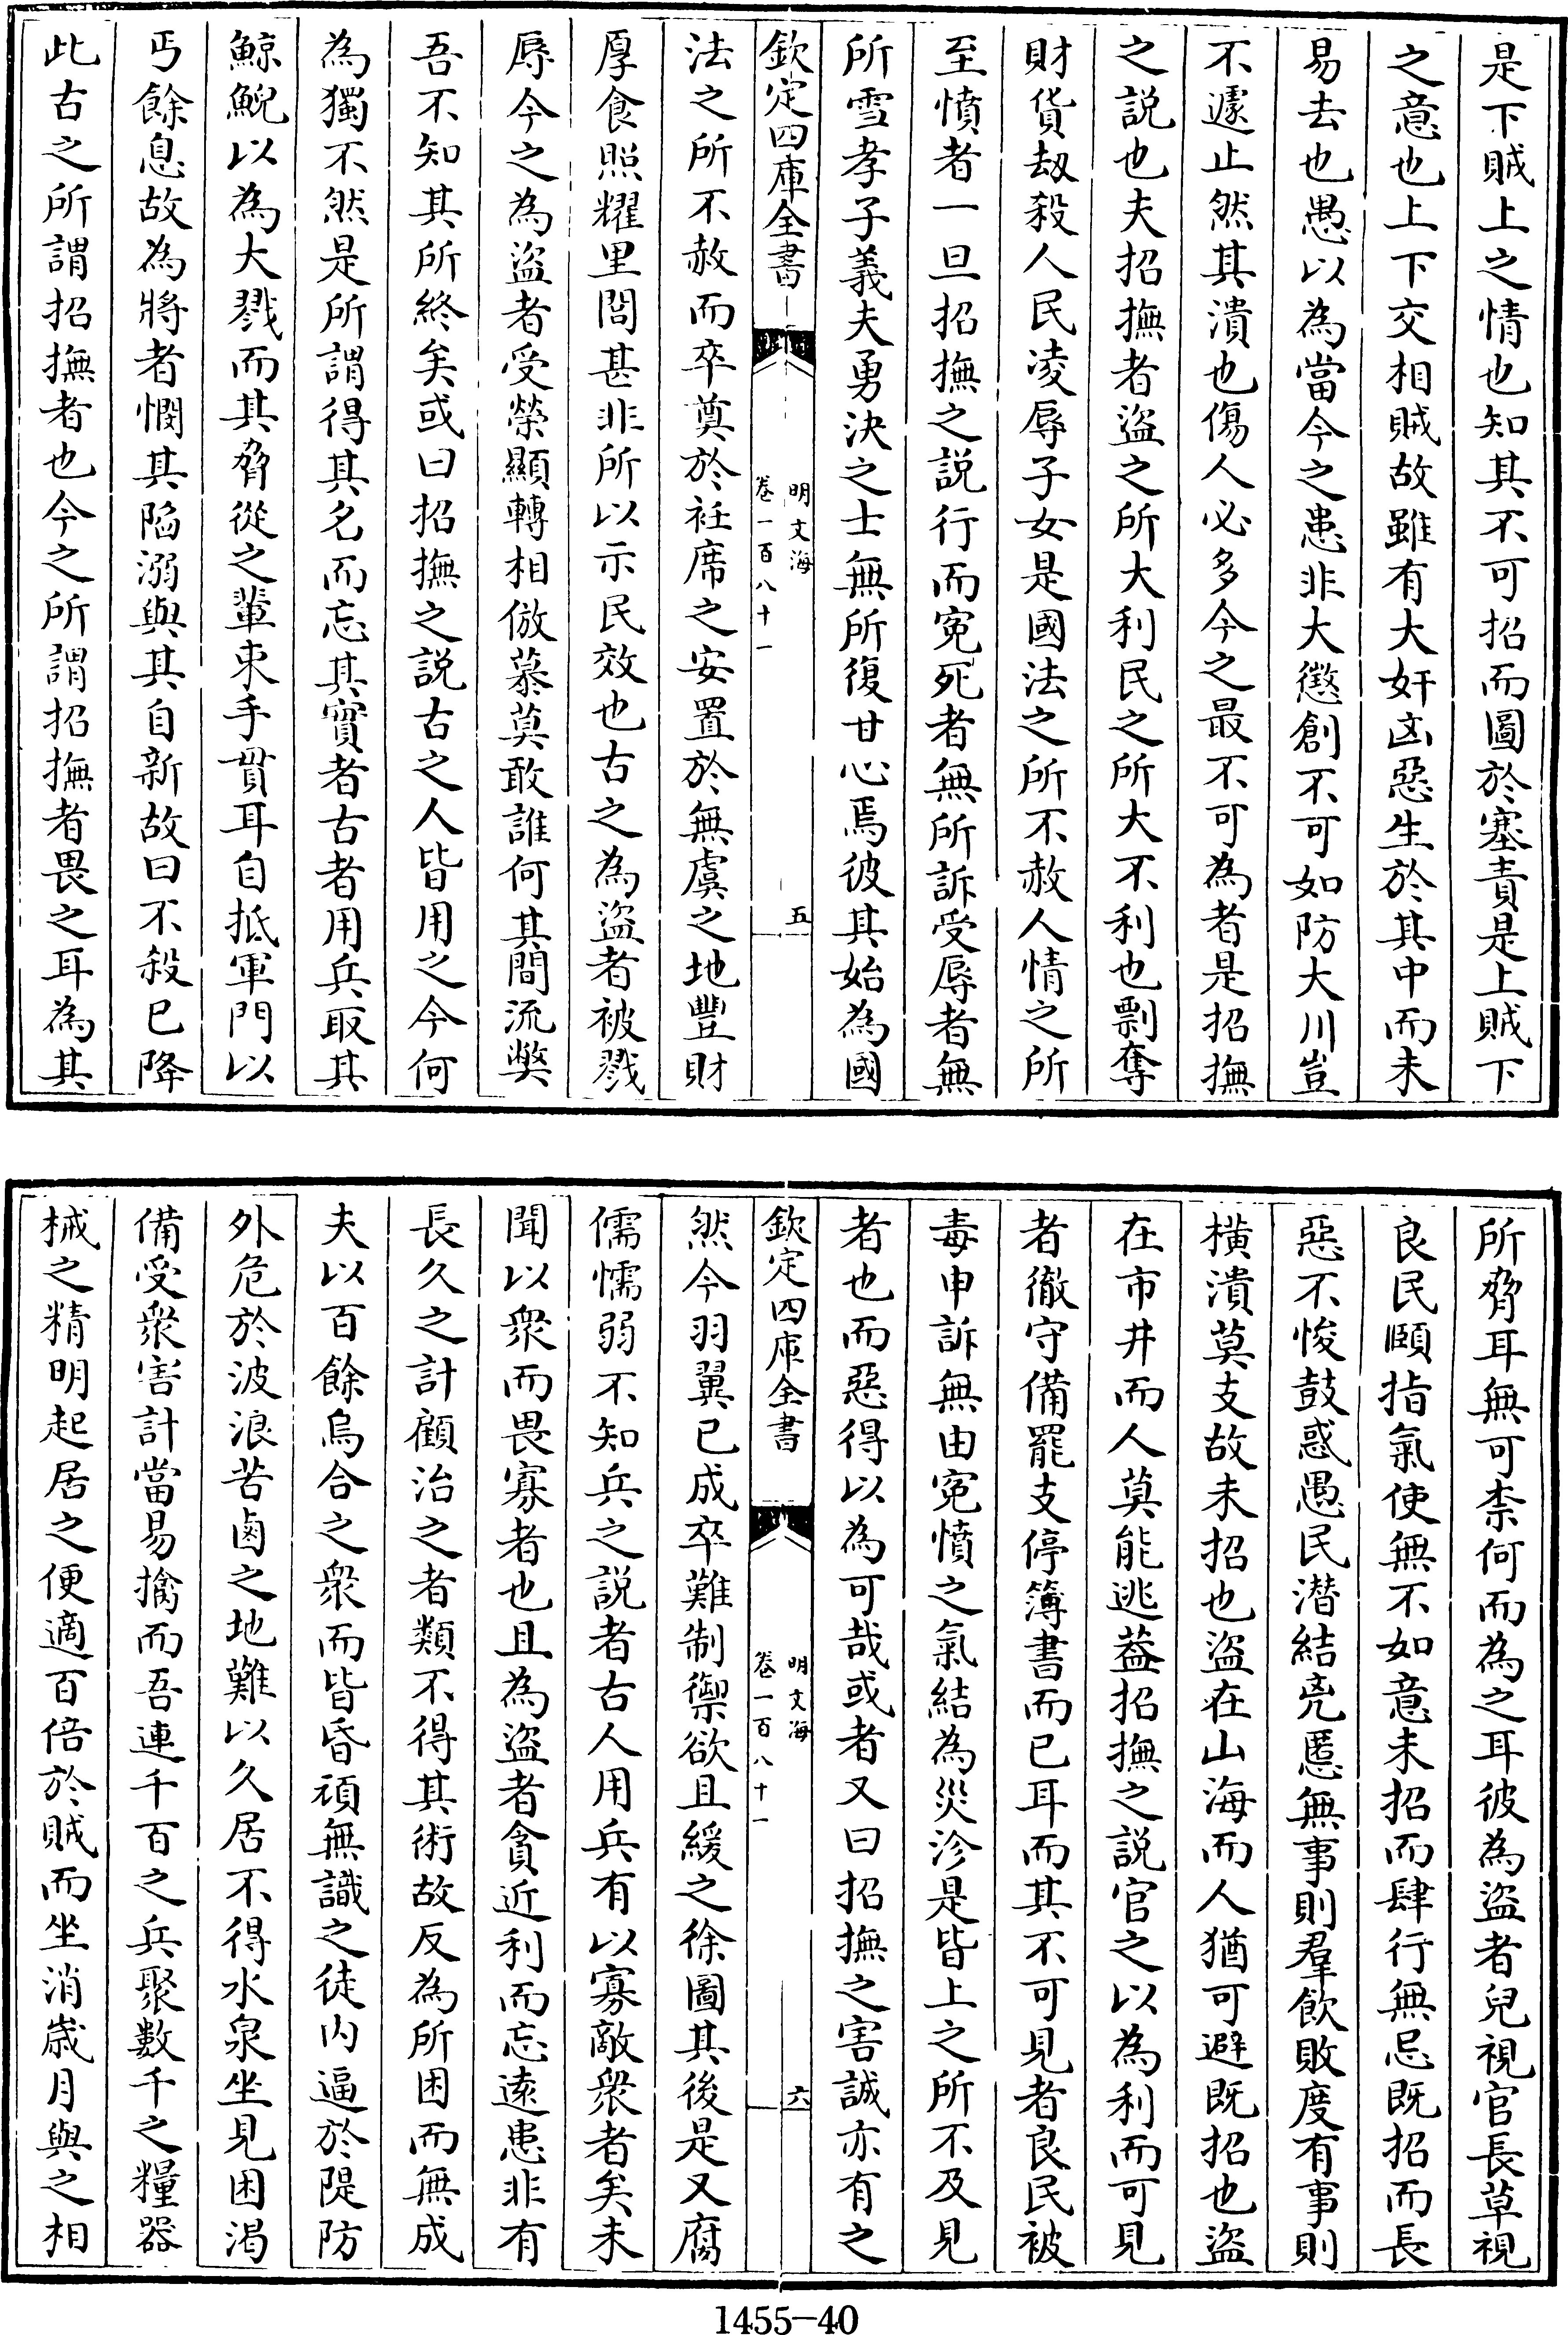 是下賊上之情也知其不可招而圖於塞責是上賊下
之意也上下交相賊故雖有大奸凶惡生於其中而未
易去也愚以為當今之患非大懲創不可如防大川豈
不遽止然其潰也傷人必多今之最不可為者是招撫
之説也夫招撫者盜之所大利民之所大不利也剽奪
財貨刼殺人民凌辱子女是國法之所不赦人情之所
至憤者一旦招撫之説行而寃死者無所訴受辱者無
所雪孝子義夫勇決之士無所復甘心焉彼其始為國
欽定四庫全書
明文海
卷一百八十一
五
法之所不赦而卒奠於衽席之安置於無虞之地豐財
厚食照耀里閭甚非所以示民效也古之為盜者被戮
辱今之為盜者受榮顯轉相倣慕莫敢誰何其間流弊
吾不知其所終矣或曰招撫之説古之人皆用之今何
為獨不然是所謂得其名而忘其實者古者用兵取其
鯨鯢以為大戮而其脅從之輩束手貫耳自抵軍門以
丐餘息故為將者憫其陷溺與其自新故曰不殺已降
此古之所謂招撫者也今之所謂招撫者畏之耳為其
所脅耳無可柰何而為之耳彼為盜者兒視官長草視
良民頤指氣使無不如意未招而肆行無忌既招而長
惡不悛鼓惑愚民潜結兇慝無事則羣飲敗度有事則
橫潰莫支故未招也盜在山海而人猶可避既招也盜
在市井而人莫能逃葢招撫之説官之以為利而可見
者徹守備罷支停簿書而已耳而其不可見者良民被
毒申訴無由寃憤之氣結為災沴是皆上之所不及見
者也而惡得以為可哉或者又曰招撫之害誠亦有之
欽定四庫全書
明文海
卷一百八十一
六
然今羽翼已成卒難制禦欲且緩之徐圖其後是又腐
儒懦弱不知兵之説者古人用兵有以寡敵衆者矣未
聞以衆而畏寡者也且為盜者貪近利而忘遠患非有
長久之計顧治之者類不得其術故反為所困而無成
夫以百餘烏合之衆而皆昏頑無識之徒内逼於隄防
外危於波浪苦鹵之地難以久居不得水泉坐見困渴
備受衆害計當易擒而吾連千百之兵聚數千之糧器
械之精明起居之便適百倍於賊而坐消嵗月與之相
1455-40